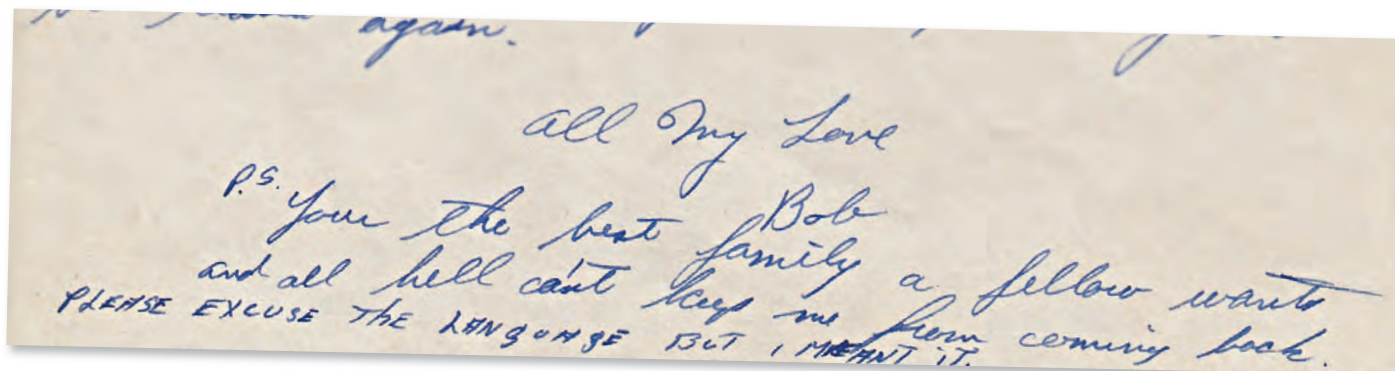 again.
All My Love
Bob
P.S. Your the best family a fellow wants
and all hell can't keep me from coming back.
PLEASE EXCUSE THE LANGUAGE BUT I MEANT IT.